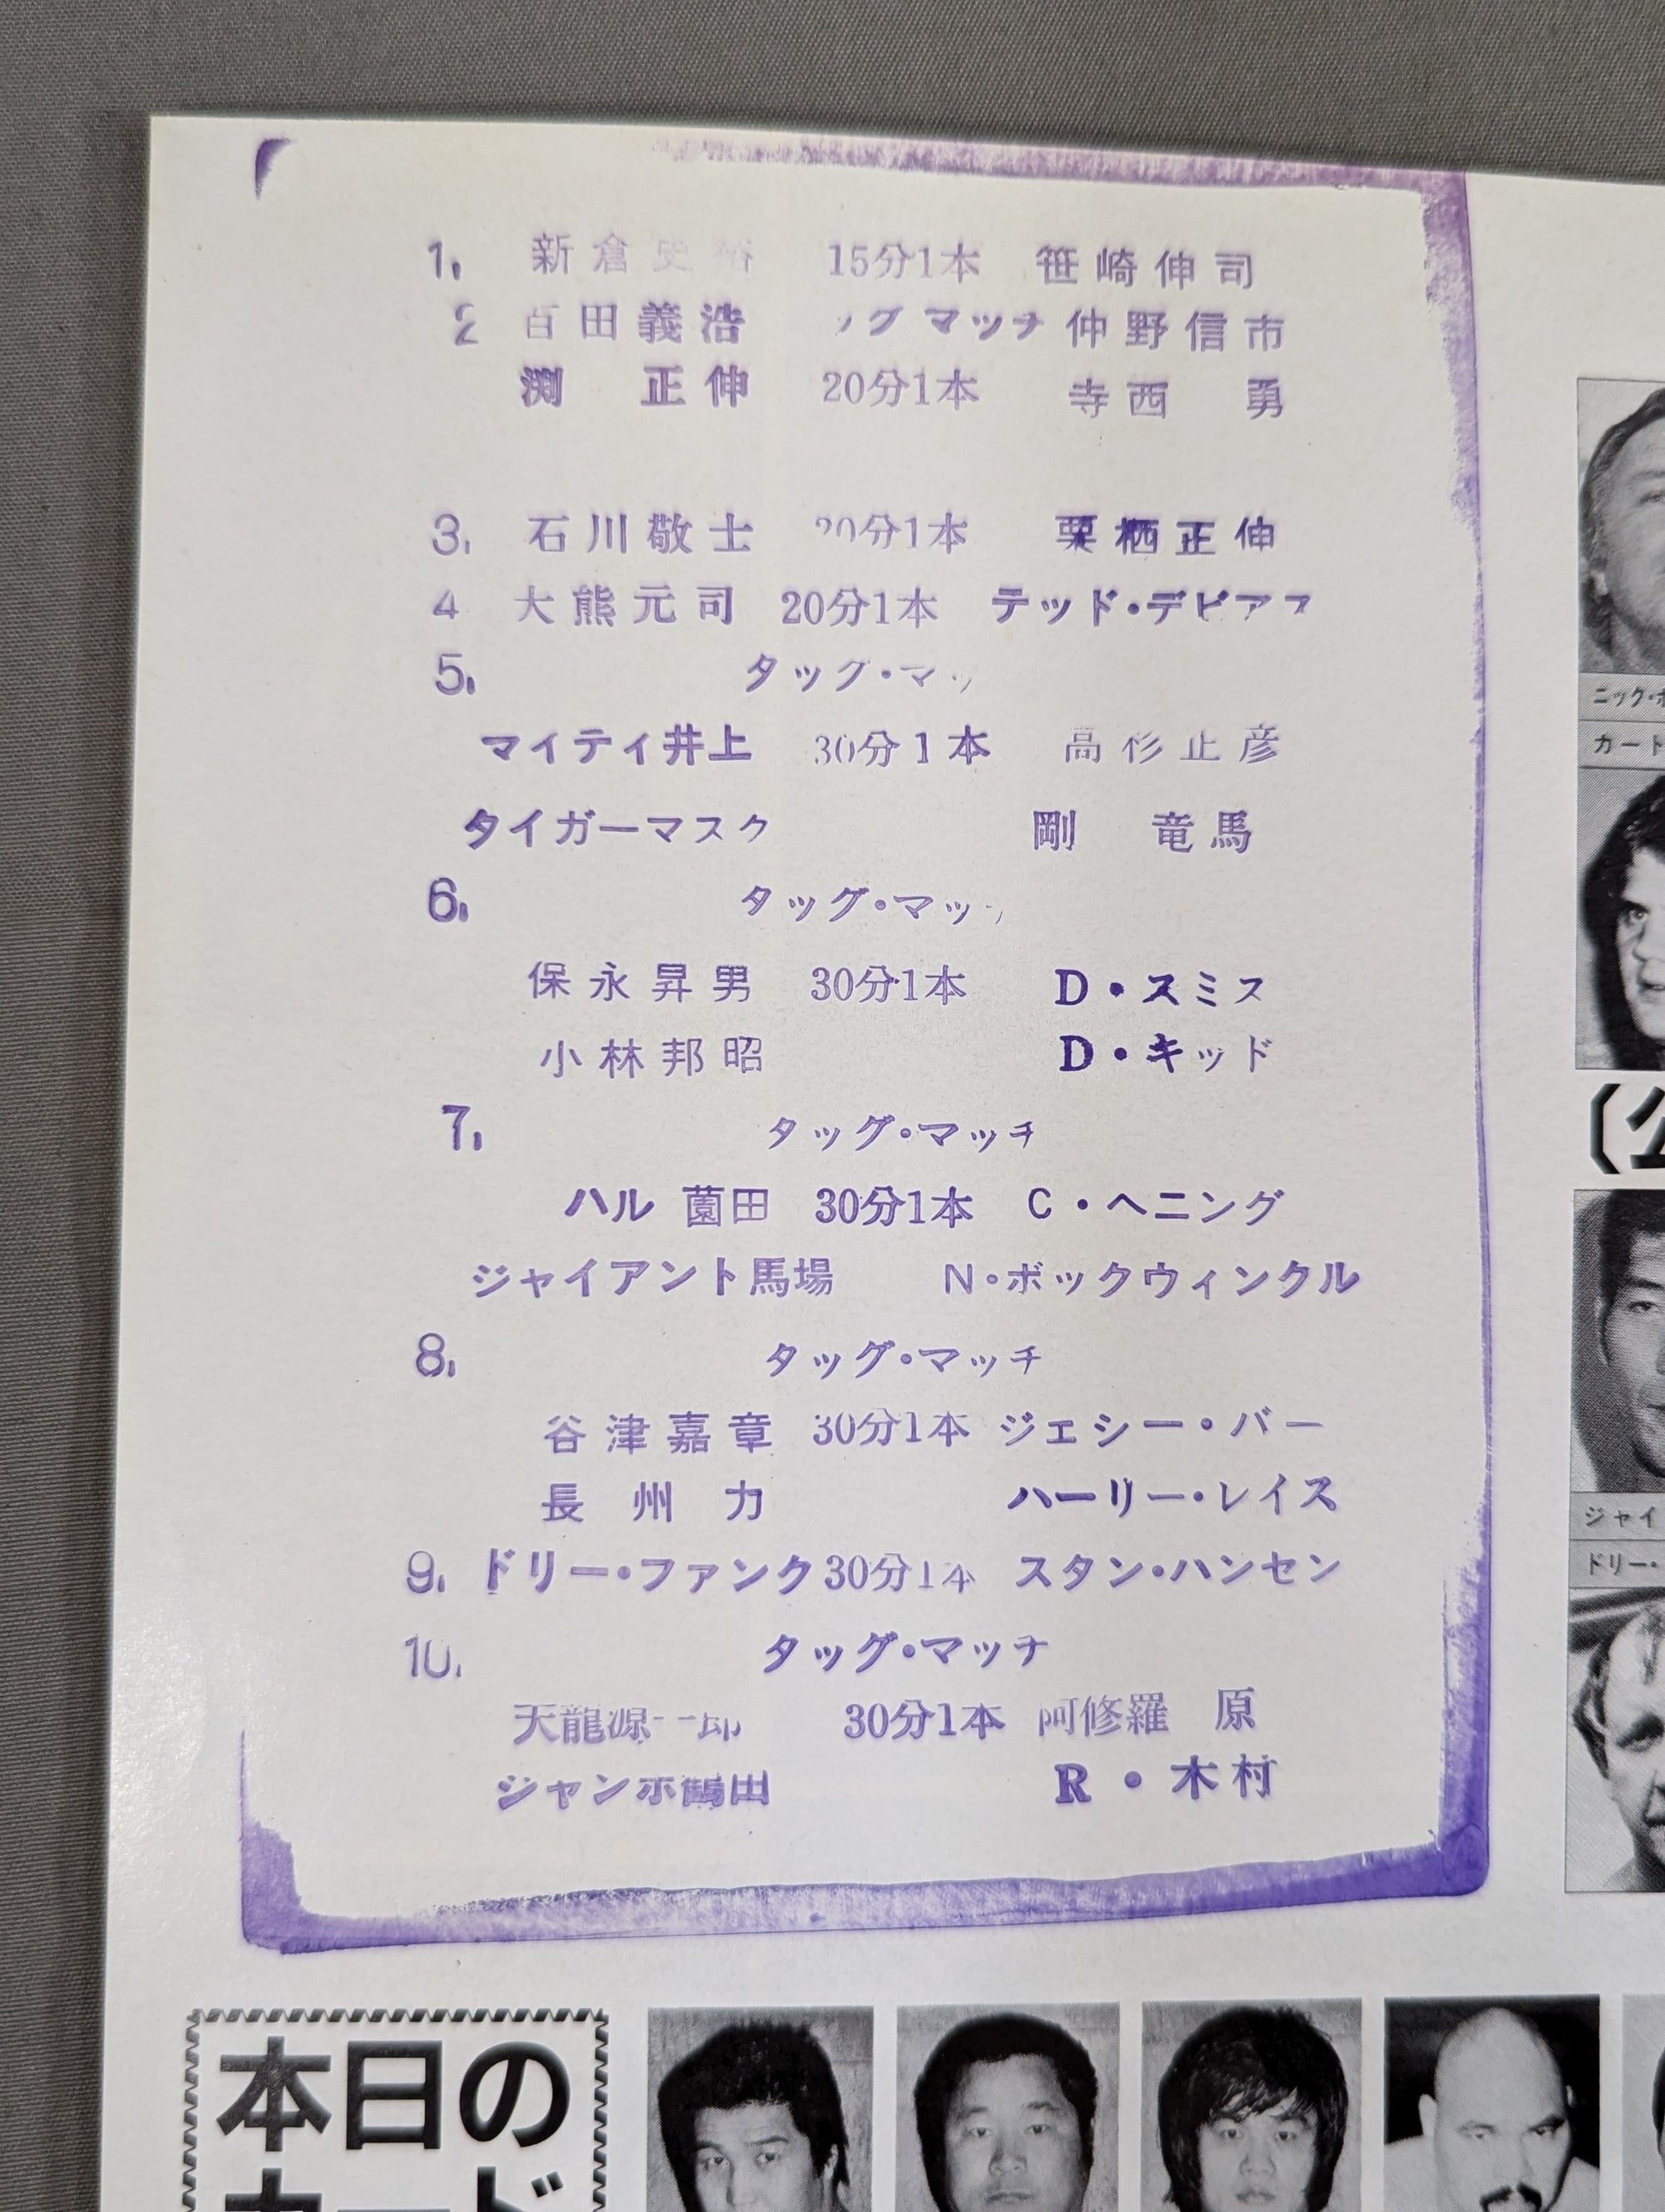 1. 新倉史裕 15分1本 笹崎伸司
2 百田義浩 タッグマッチ 仲野信市
渕 正伸 20分1本 寺西 勇
3. 石川敬士 20分1本 栗栖正伸
4 大熊元司 20分1本 テッド・デビアス
5. タッグ・マッ
マイティ井上 30分1本 高杉正彦
タイガーマスク 剛 竜馬
6. タッグ・マッ
保永昇男 30分1本 D・スミス
小林邦昭 D・キッド
7. タッグ・マッチ
ハル 薗田 30分1本 C・ヘニング
ジャイアント馬場 N・ボックウィンクル
8. タッグ・マッチ
谷津嘉章 30分1本 ジェシー・バー
長州力 ハーリー・レイス
9. ドリー・ファンク 30分1本 スタン・ハンセン
10. タッグ・マッチ
天龍源一郎 30分1本 阿修羅 原
ジャンボ鶴田 R・木村
ニック・ボ
カート
(公
ジャイ
ドリー・
本日の
カード